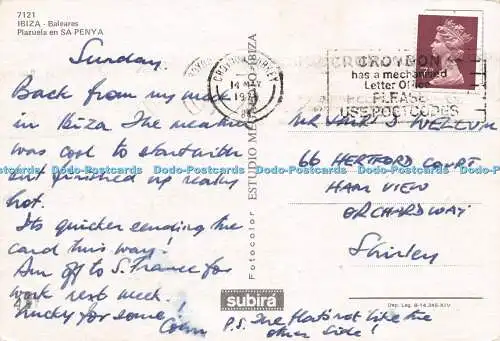 7121
IBIZA - Baleares
Plazuela en SA PENYA
Sunday.
Back from my week
in Ibiza The weather
was cool to start with
but finished up really
hot.
Its quicker sending the
card this way!
Am off to S. France for
work next week.
Lucky for some!
Colin
P.S. The flat's not like the
other side!
Fotocolor ESTUDIO IBIZA
subirá
CROYDON SURREY
14 MAY
CROYDON
has a mechanised
Letter Office
PLEASE
USE POSTCODES
66 HERTFORD COURT
HAM VIEW
ORCHARD WAY
Shirley
Dep. Leg. B-14.345-XIV
Dodo-Postcards